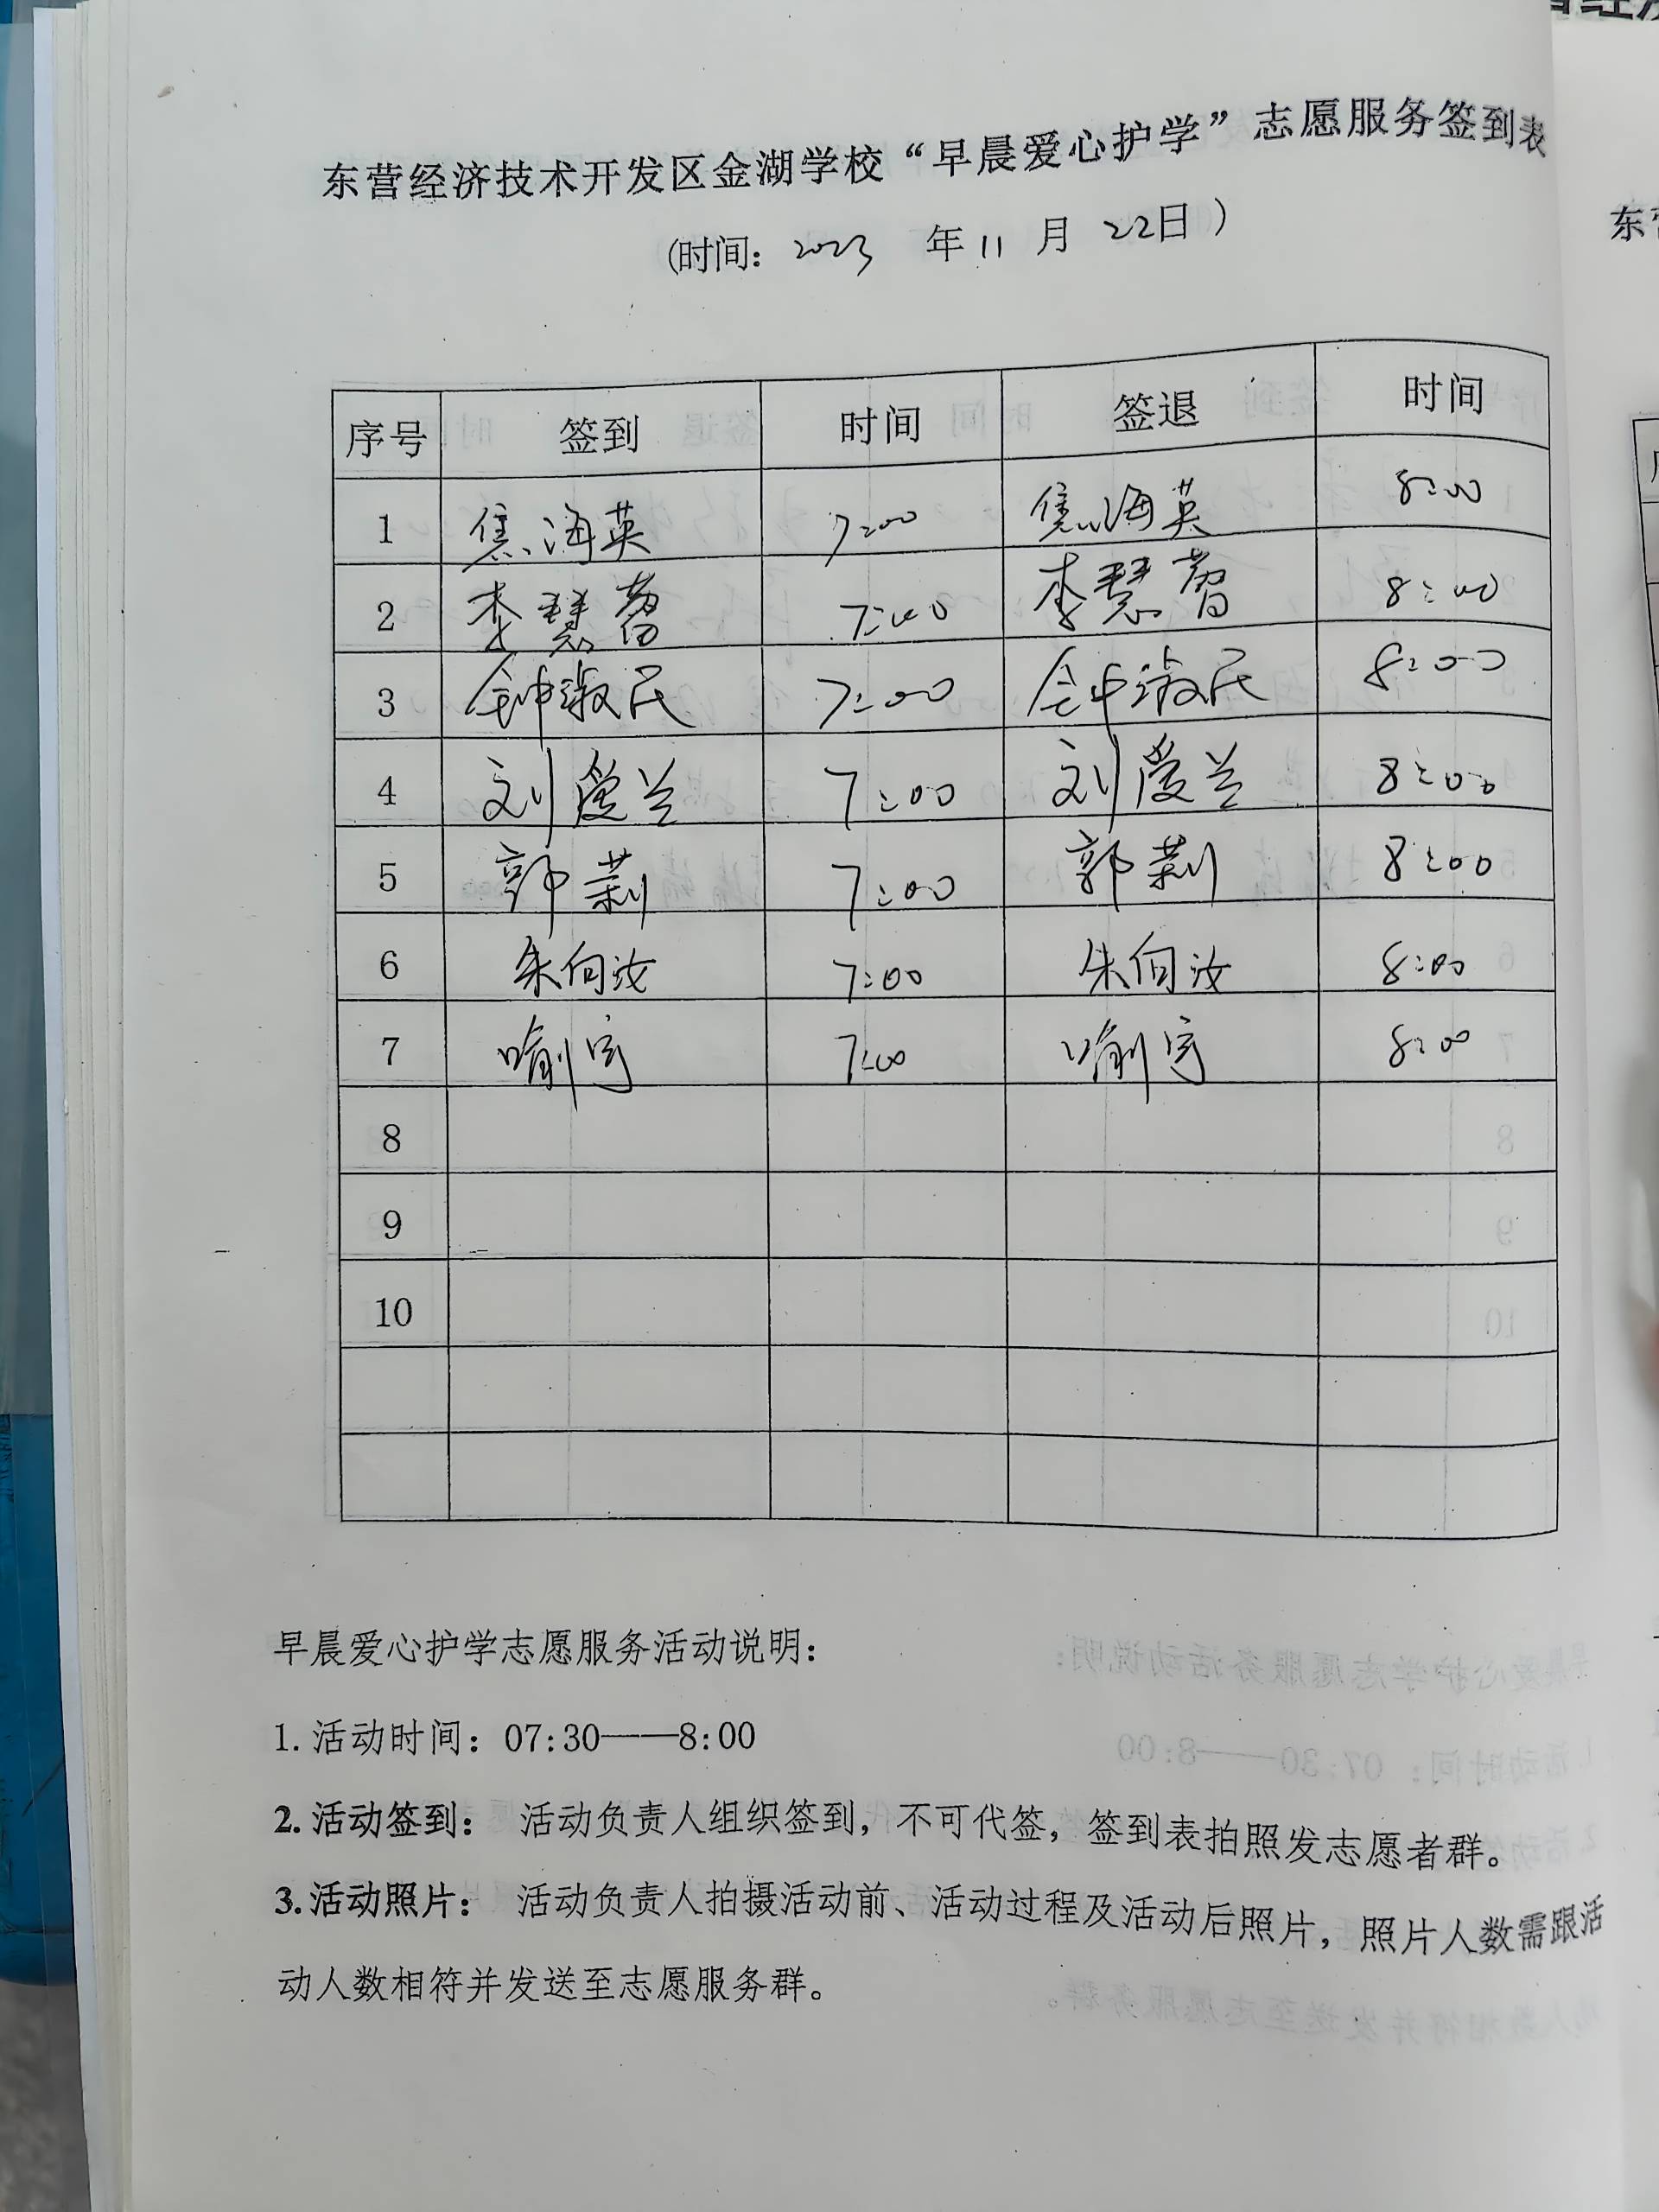 东营经济技术开发区金湖学校“早晨爱心护学”志愿服务签到表
(时间：2023 年 11 月 22日)
序号 签到 时间 签退 时间
1 焦海英 7:00 焦海英 8:00
2 李慧 7:00 李慧 8:00
3 钟淑民 7:00 钟淑民 8:00
4 刘爱兰 7:00 刘爱兰 8:00
5 郭莉 7:00 郭莉 8:00
6 朱向汝 7:00 朱向汝 8:00
7 喻宇 7:00 喻宇 8:00
8
9
10
早晨爱心护学志愿服务活动说明：
1. 活动时间：07:30——8:00
2. 活动签到： 活动负责人组织签到，不可代签，签到表拍照发志愿者群。
3. 活动照片： 活动负责人拍摄活动前、活动过程及活动后照片，照片人数需跟活
动人数相符并发送至志愿服务群。